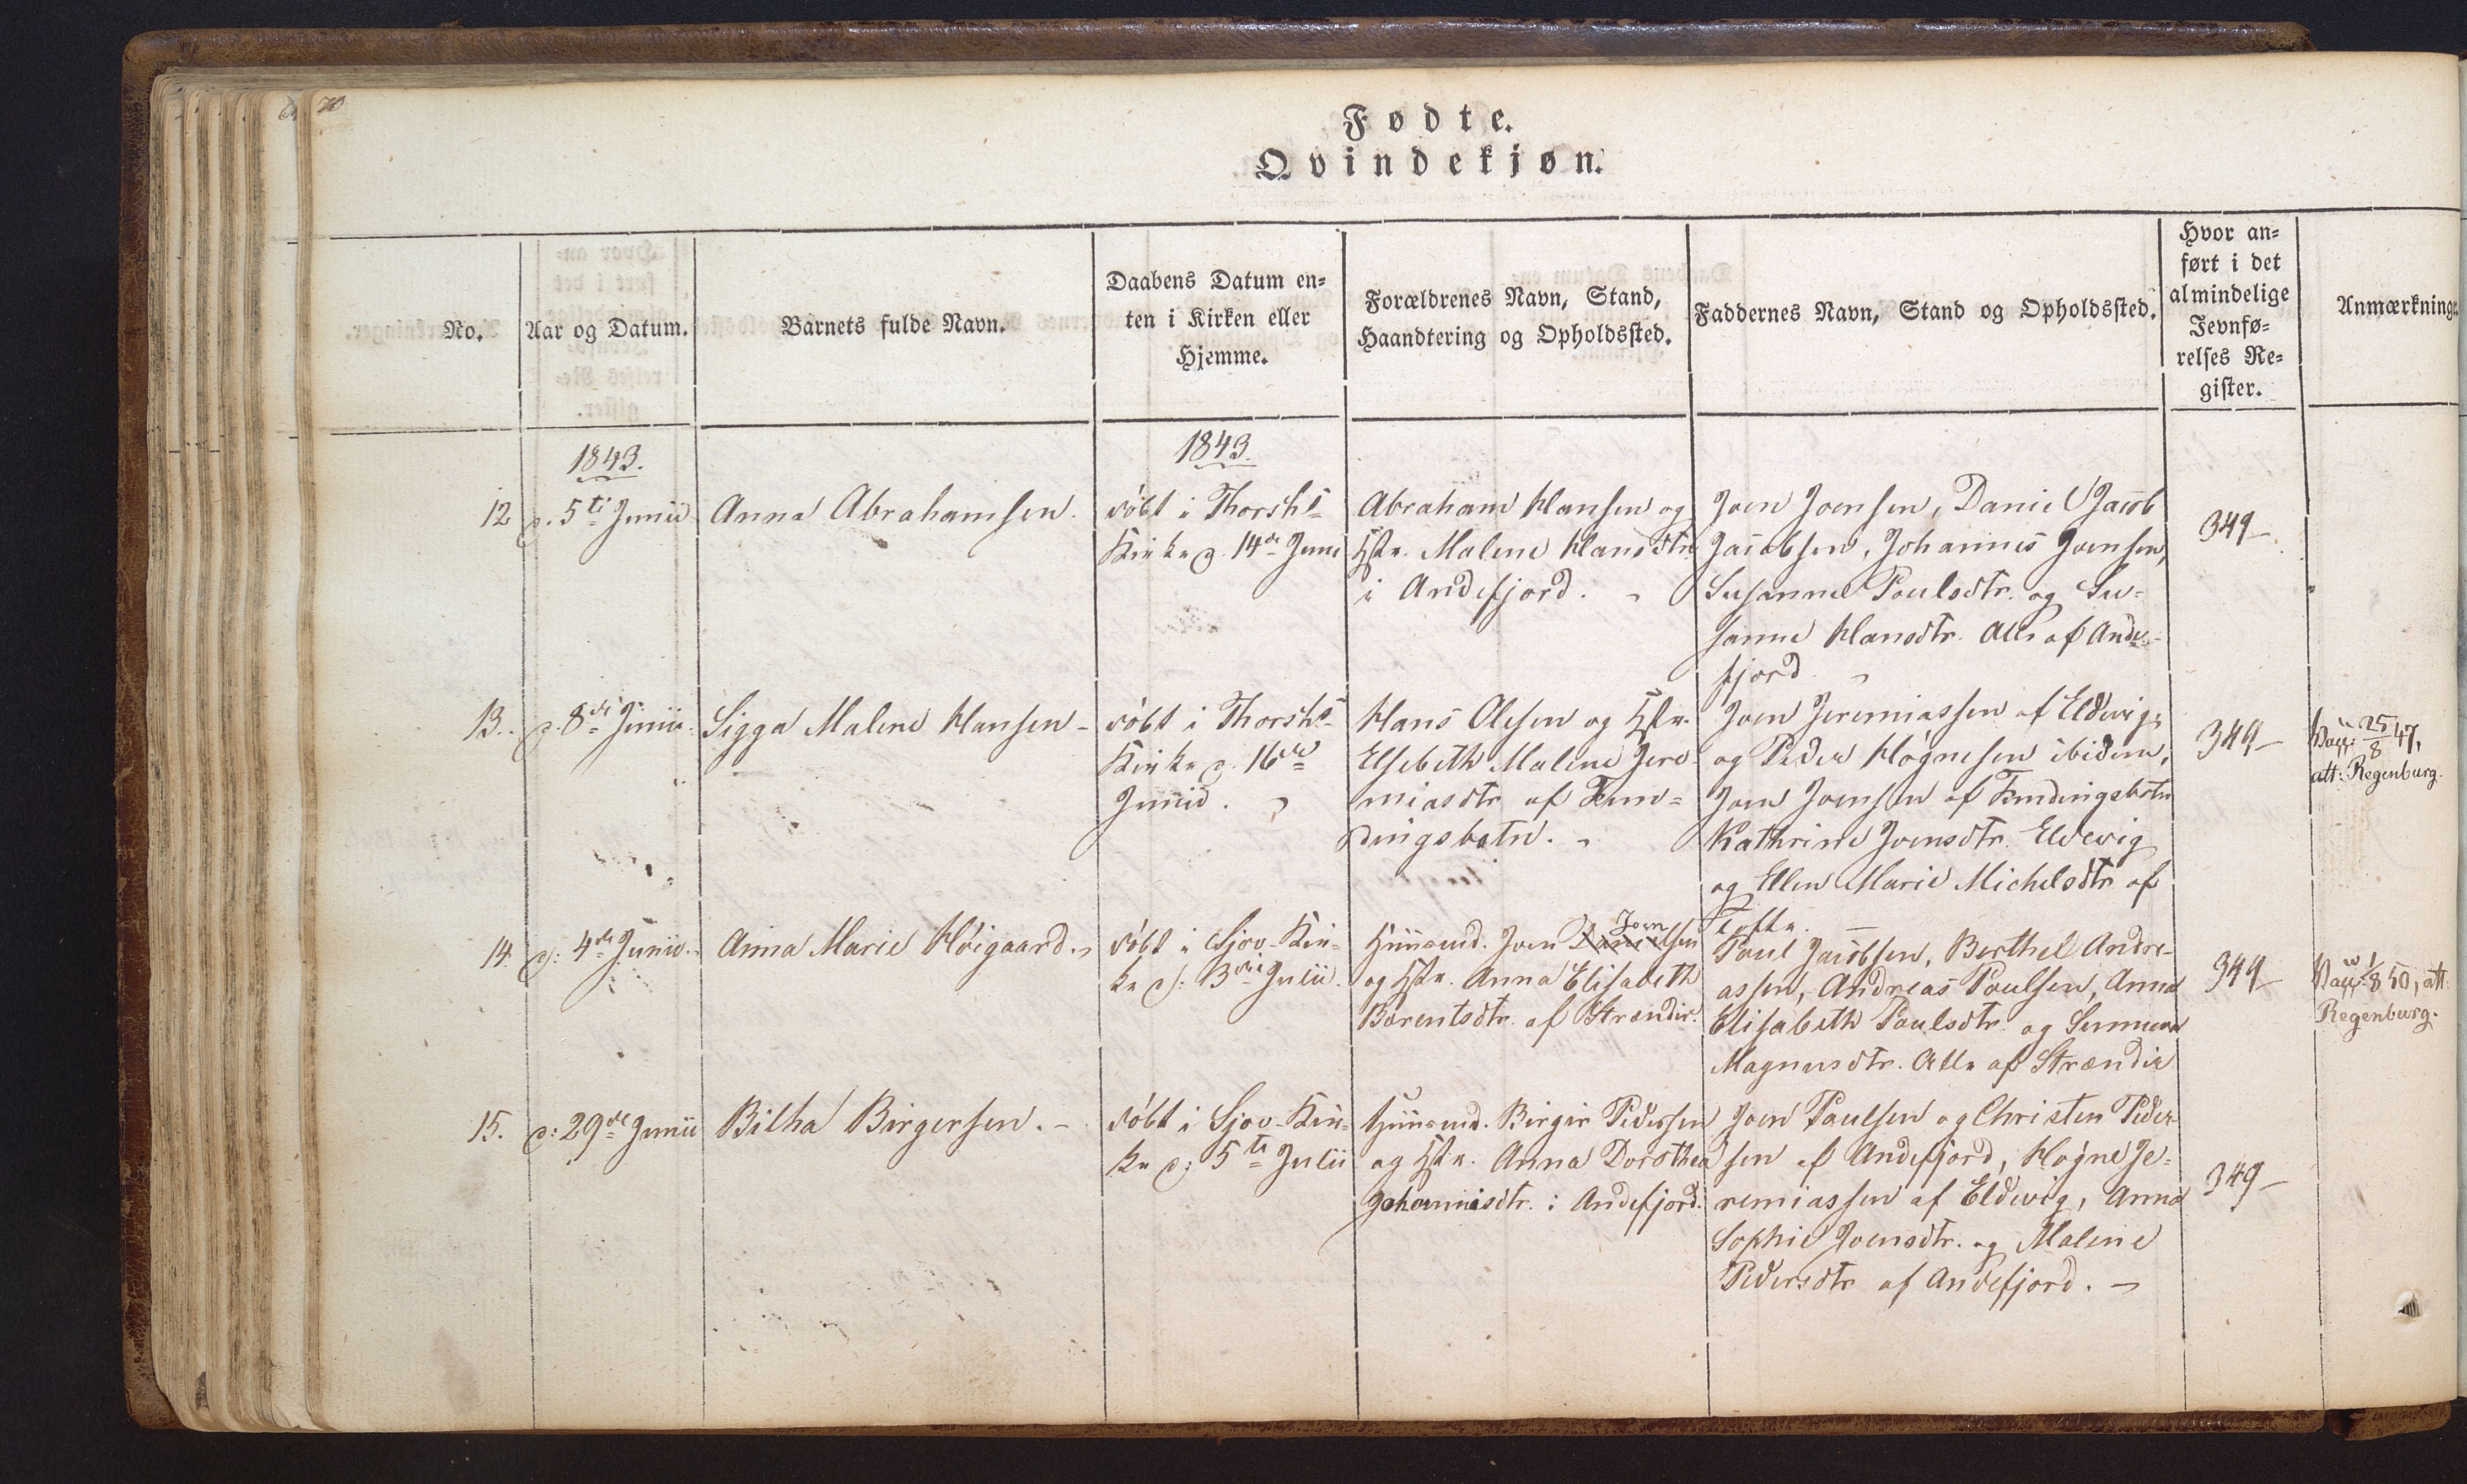 70
Fødte.
Qvindekjøn.
No.
Aar og Datum.
Barnets fulde Navn.
Daabens Datum en-
ten i Kirken eller
Hjemme.
Forældrenes Navn, Stand,
Haandtering og Opholdssted.
Faddernes Navn, Stand og Opholdssted.
Hvor an-
ført i det
almindelige
Jevnfø-
relses Re-
gister.
Anmærkning
1843.
1843.
12
d. 5te Junii
Anna Abrahamsen.
døbt i Thorshs
Kirke d. 14de Juni
Abraham Hansen og
Hstr. Malene Hansdtr
i Andefjord.
Joen Joensen, Daniel Jacob
Jacobsen, Johannes Joensen,
Susanne Poulsdtr. og Su-
sanne Hansdtr. Alle af Ande-
fjord
349
13.
d. 8de Junii
Sigga Malene Hansen
døbt i Thorshs
Kirke d. 16de
Junii.
Hans Olesen og Hstr.
Elsebeth Malene Jere-
miasdtr af Fun-
dingsbotn.
Joen Jeremiassen af Eldevig
og Peder Høgnesen ibidem,
Joen Joensen af Fundingsbotn
Kathrine Joensdtr. Eldevig
og Ellen Marie Michelsdtr af
Tofte.
349
Vacc. 25/8 47,
att: Regenburg.
14.
d: 4de Junii
Anna Marie Høigaard.
døbt i Sjov-Kir-
ke d: 3die Julii.
Huusmd. Joen Danielsen Joen
og Hstr. Anna Elisabeth
Barentsdtr. af Strænder.
Poul Jacobsen, Berthel Andre-
assen, Andreas Poulsen, Anna
Elisabeth Poulsdtr. og Sunneva
Magnusdtr. Alle af Strænder
349
Vacc. 1/8 50, att:
Regenburg.
15.
d: 29de Junii
Bilha Birgersen.
døbt i Sjov-Kir-
ke d: 5te Julii
Huusmd. Birger Pedersen
og Hstr. Anna Dorothea
Johannisdtr. i Andefjord.
Joen Poulsen og Christen Peder-
sen af Andefjord, Høgne Je-
remiassen af Eldevig, Anna
Sophie Joensdtr. og Malene
Pedersdtr af Andefjord.
349